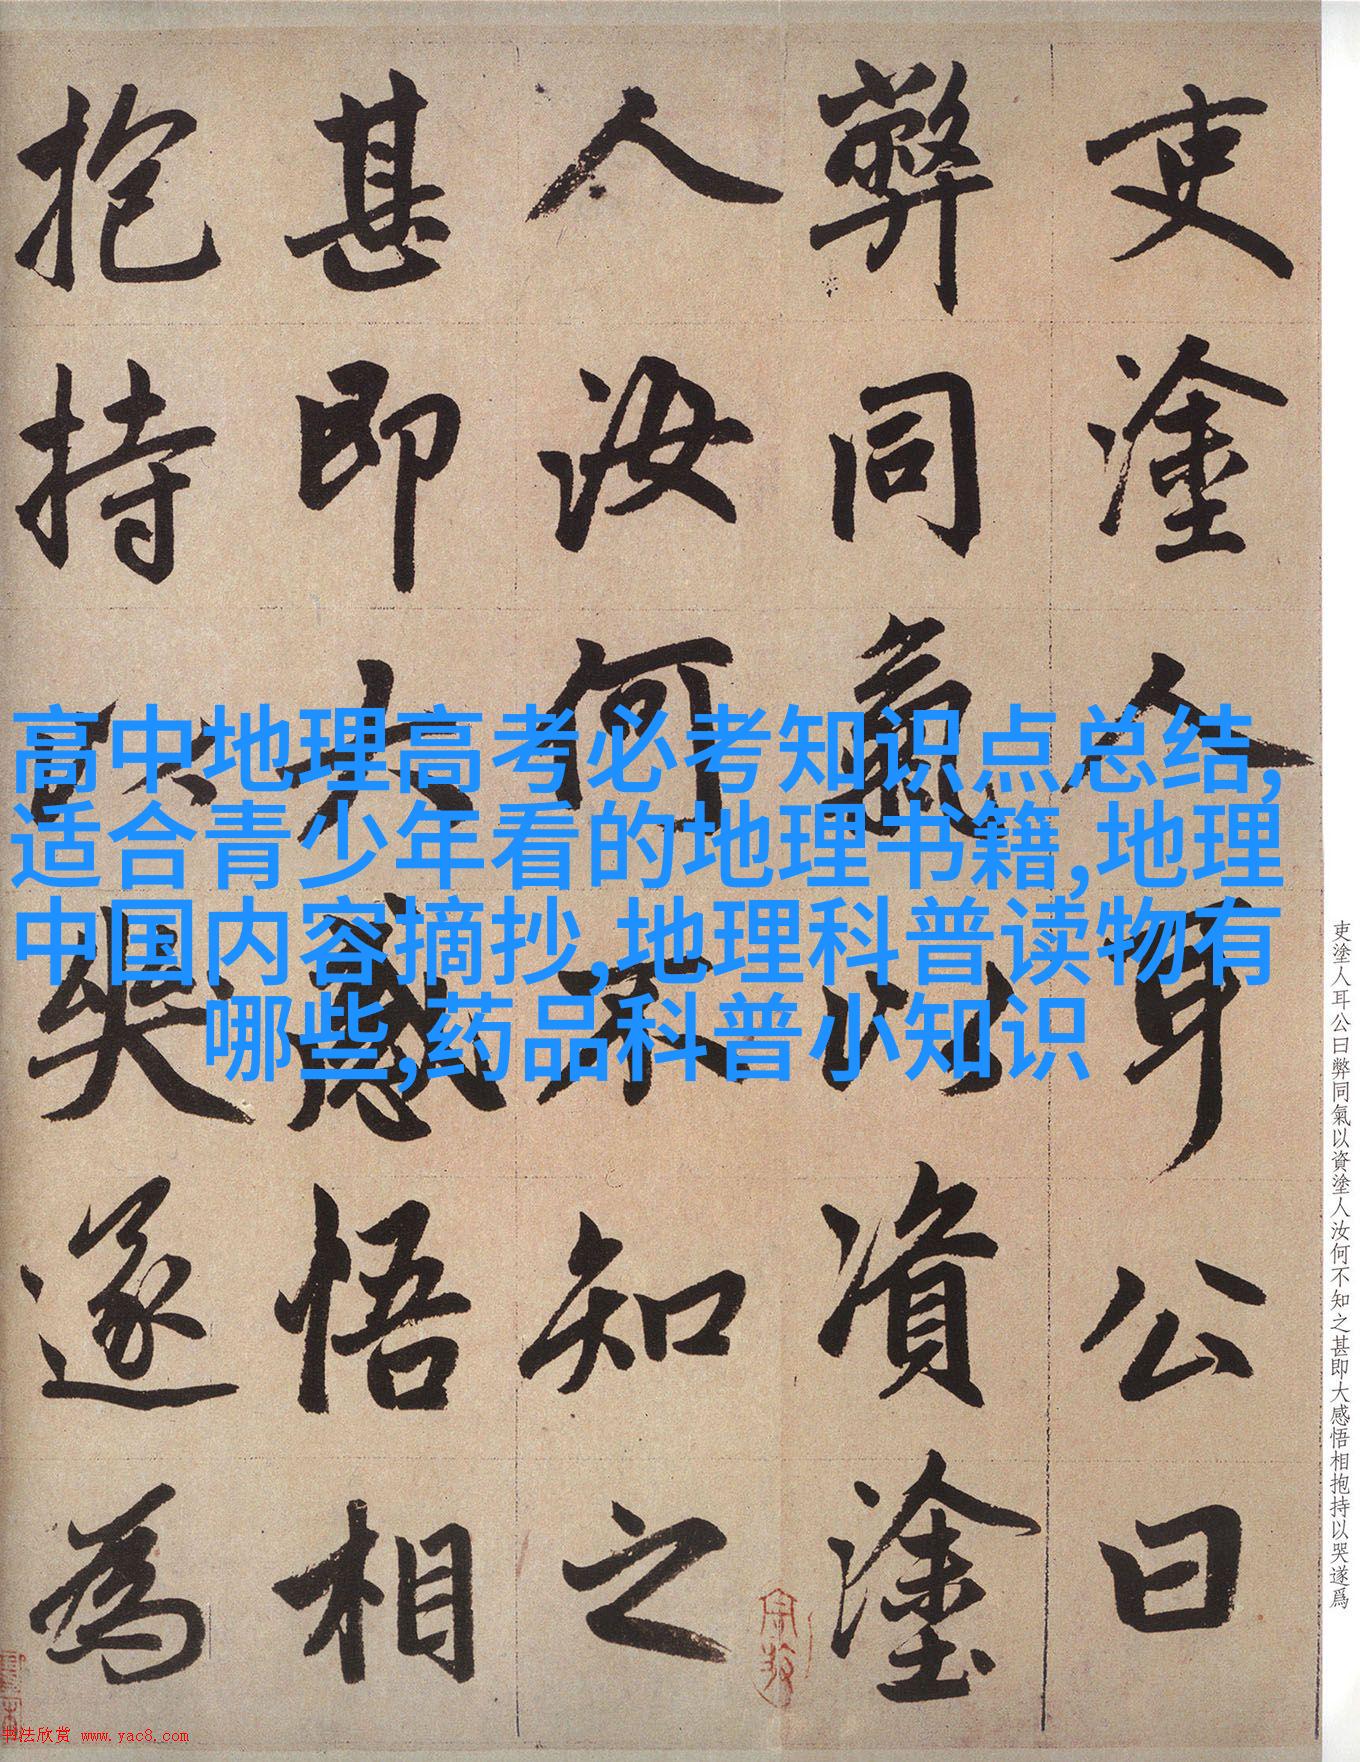 吏塗人耳公曰
弊同氣以資塗
人汝何不知之
甚即大感悟相
抱持以哭遂為
高中地理高考必考知识点总结,
适合青少年看的地理书籍,地理
中国内容摘抄,地理科普读物有
哪些,药品科普小知识
吏塗人耳公曰弊同氣以資塗人汝何不知之甚即大感悟相抱持以哭遂爲
书法欣赏 www.yac8.com